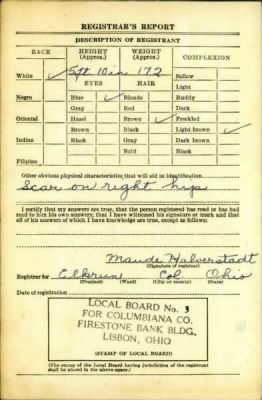 REGISTRAR'S REPORT
DESCRIPTION OF REGISTRANT
RACE HEIGHT (Approx.) WEIGHT (Approx.) COMPLEXION
White ✓ 5 ft 10 in 172 Sallow
EYES HAIR Light
Negro Blue ✓ Blonde Ruddy
Gray Red Dark
Oriental Hazel Brown ✓ Freckled
Brown Black Light brown ✓
Indian Black Gray Dark brown
Bald Black
Filipino
Other obvious physical characteristics that will aid in identification
Scar on right hip
I certify that my answers are true; that the person registered has read or has had
read to him his own answers; that I have witnessed his signature or mark and that
all of his answers of which I have knowledge are true, except as follows:
Maude Halverstadt
(Signature of registrar)
Registrar for Elkrun Col. Ohio
(Precinct) (Ward) (City or county) (State)
Date of registration
LOCAL BOARD No. 3
FOR COLUMBIANA CO.
FIRESTONE BANK BLDG.
LISBON, OHIO
(STAMP OF LOCAL BOARD)
(The stamp of the Local Board having jurisdiction of the registrant
shall be placed in the above space.)